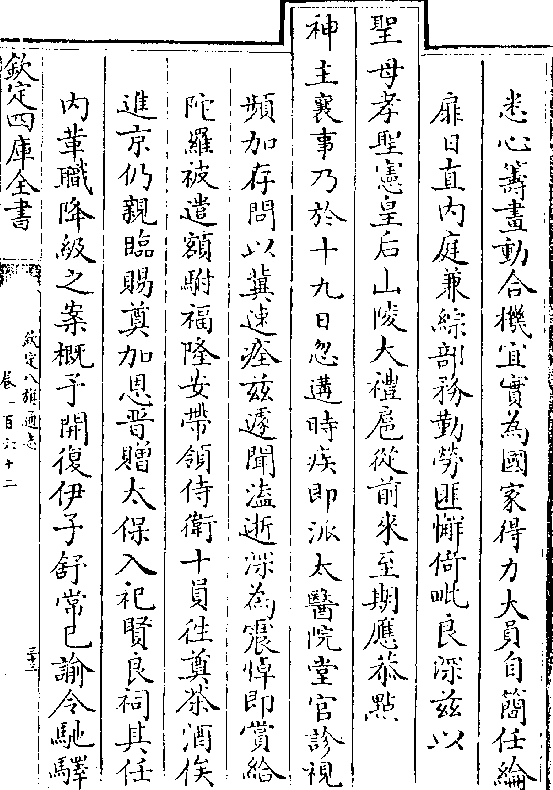 悉心籌畫動合機宜實為國家得力大員自簡任綸
扉日直內庭兼綜部務勤勞匪懈倚毗良深兹以
聖母孝聖憲皇后山陵大禮扈從前來至期應恭點
神主襄事乃於十九日忽遘時疾即派太醫院堂官診視
頻加存問以冀速痊兹遽聞溘逝深為震悼即賞給
陀羅被遣額駙福隆安帶領侍衛十員往奠茶酒俟
進京仍親臨賜奠加恩晋贈太保入祀賢良祠其任
內革職降級之案概予開復伊子舒常已諭令馳驛
欽定四庫全書
欽定八旗通志
卷一百六十二
三十二